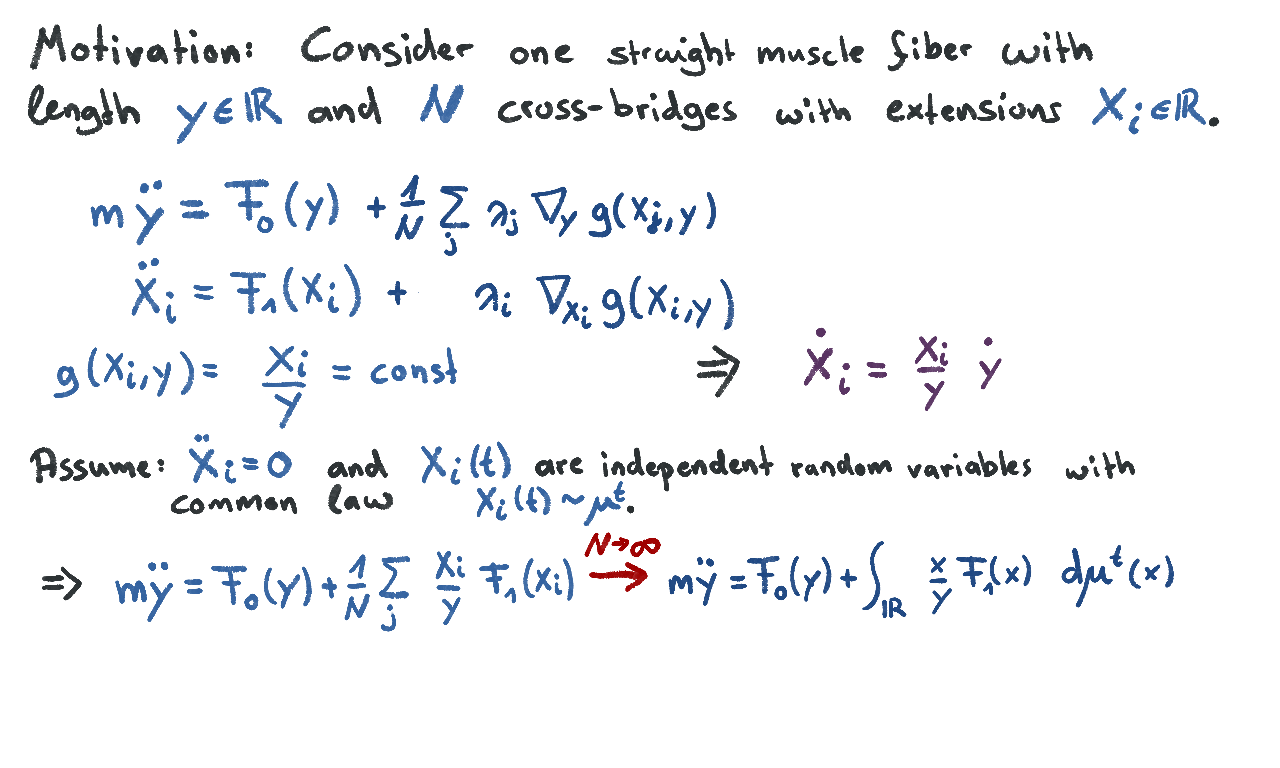 Motivation: Consider one straight muscle fiber with
length y∈ℝ and N cross-bridges with extensions Xᵢ∈ℝ.
mÿ = F₀(y) + 1/N ∑ⱼ λⱼ ∇_y g(Xⱼ,y)
Ẍᵢ = F₁(Xᵢ) + λᵢ ∇_{Xᵢ} g(Xᵢ,y)
g(Xᵢ,y) = Xᵢ/y = const ⇒ Ẋᵢ = Xᵢ/y ẏ
Assume: Ẍᵢ=0 and Xᵢ(t) are independent random variables with
common law Xᵢ(t) ~ μᵗ.
⇒ mÿ = F₀(y) + 1/N ∑ⱼ Xᵢ/y F₁(Xᵢ) N→∞ → mÿ = F₀(y) + ∫_ℝ x/y F₁(x) dμᵗ(x)